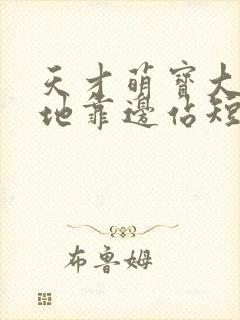 天才萌寶大
地靠邊佔短
布魯姆